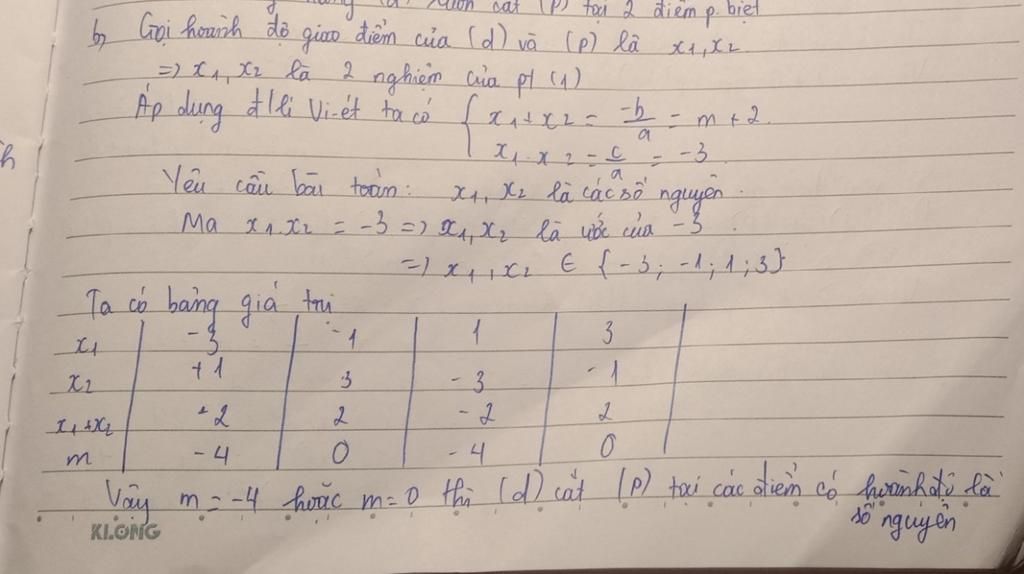 cắt (P) tại 2 điểm p. biệt
b, Gọi hoành độ giao điểm của (d) và (P) là x1, x2
=> x1, x2 là 2 nghiệm của pt (1)
Áp dụng đ/lí Vi-ét ta có { x1 + x2 = -b/a = m + 2.
x1 . x2 = c/a = -3
Yêu cầu bài toán: x1, x2 là các số nguyên.
Ma x1.x2 = -3 => x1, x2 là ước của -3.
=> x1, x2 ∈ {-3; -1; 1; 3}
Ta có bảng giá trị
x1 | -3 | -1 | 1 | 3
x2 | +1 | 3 | -3 | -1
x1+x2 | -2 | 2 | -2 | 2
m | -4 | 0 | -4 | 0
Vậy m = -4 hoặc m = 0 thì (d) cắt (P) tại các điểm có hoành độ là
số nguyên
KLONG